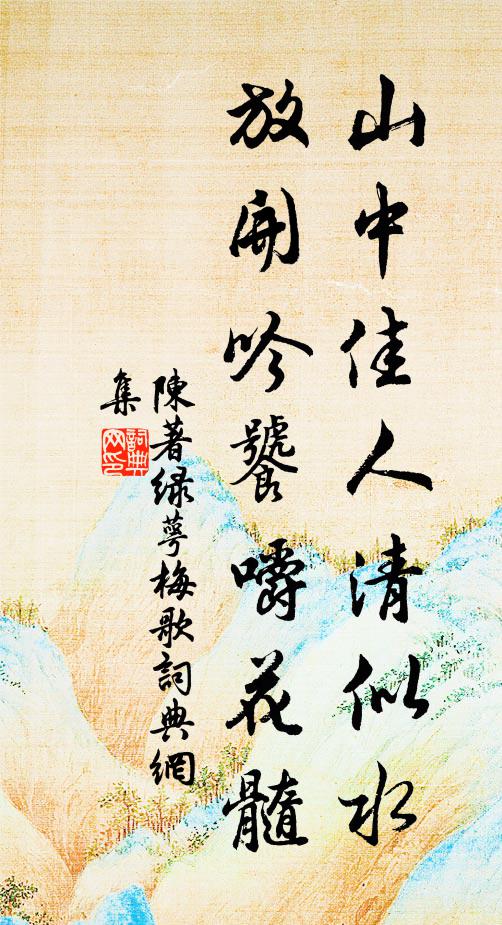 山中佳人清似水
放開吟饕嚼花髓
陳著绿萼梅歌詞典網
集
詞典
网印